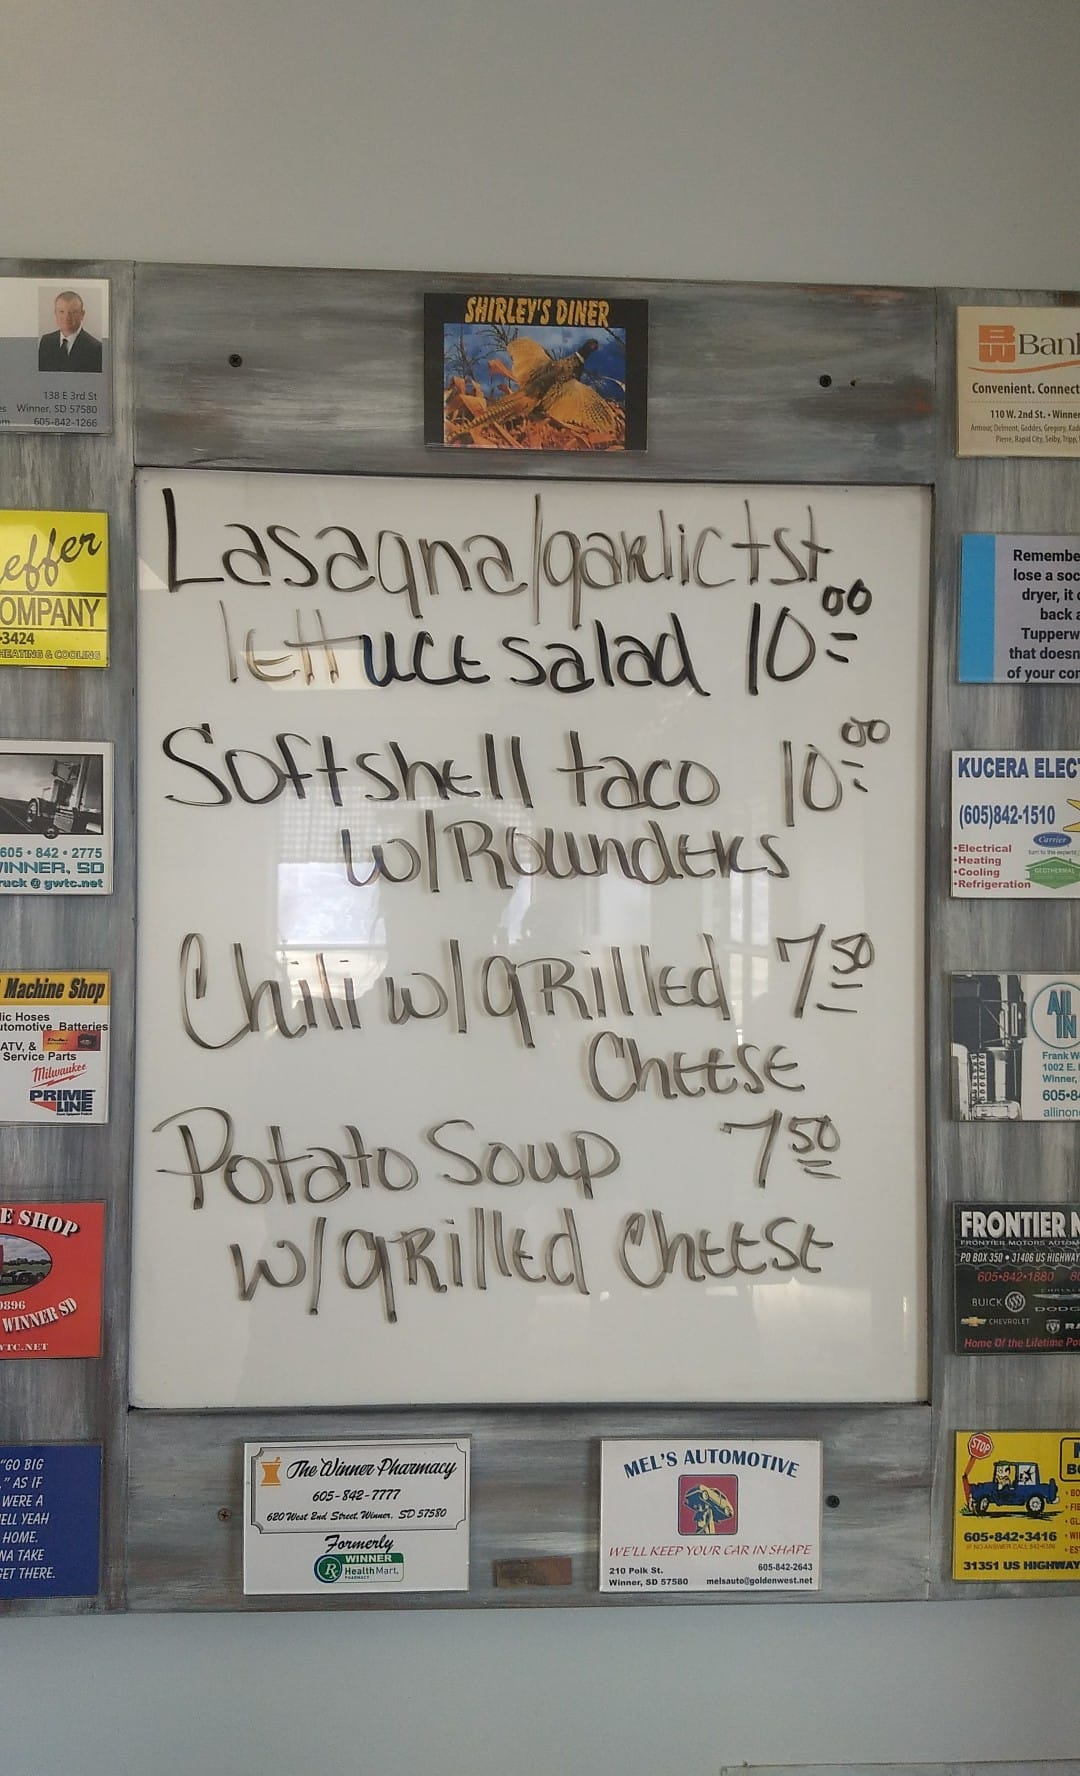 SHIRLEY'S DINER
Lasagna/garlic tst
lettuce salad 10.00
Softshell taco 10.00
w/Rounders
Chili w/grilled 7.50
Cheese
Potato Soup 7.50
w/grilled Cheese
138 E 3rd St
Winner, SD 57580
605-842-1266
COMPANY
-3424
HEATING & COOLING
605 • 842 • 2775
WINNER, SD
ruck @ gwtc.net
Machine Shop
lic Hoses
utomotive Batteries
ATV, &
Service Parts
Milwaukee
PRIME
LINE
E SHOP
0896
WINNER SD
WTC.NET
"GO BIG
," AS IF
WERE A
ELL YEAH
HOME.
NA TAKE
GET THERE.
The Winner Pharmacy
605-842-7777
620 West 2nd Street, Winner, SD 57580
Formerly
WINNER
HealthMart.
PHARMACY
MEL'S AUTOMOTIVE
WE'LL KEEP YOUR CAR IN SHAPE
210 Polk St. 605-842-2643
Winner, SD 57580 melsauto@goldenwest.net
BW Bank
Convenient. Connect
110 W. 2nd St. • Winner
Armour, Delmont, Geddes, Gregory, Kad
Pierre, Rapid City, Selby, Tripp,
Remembe
lose a soc
dryer, it c
back a
Tupperw
that doesn
of your con
KUCERA ELECT
(605)842-1510
Carrier
•Electrical
•Heating
•Cooling
•Refrigeration
GEOTHERMAL
ALL
IN
Frank W
1002 E.
Winner,
605•84
allinon
FRONTIER M
FRONTIER MOTORS AUTOM
PO BOX 350 • 31406 US HIGHWAY
605•842•1880
BUICK
DODG
CHEVROLET
RA
Home Of the Lifetime Po
STOP
605•842•3416
31351 US HIGHWAY